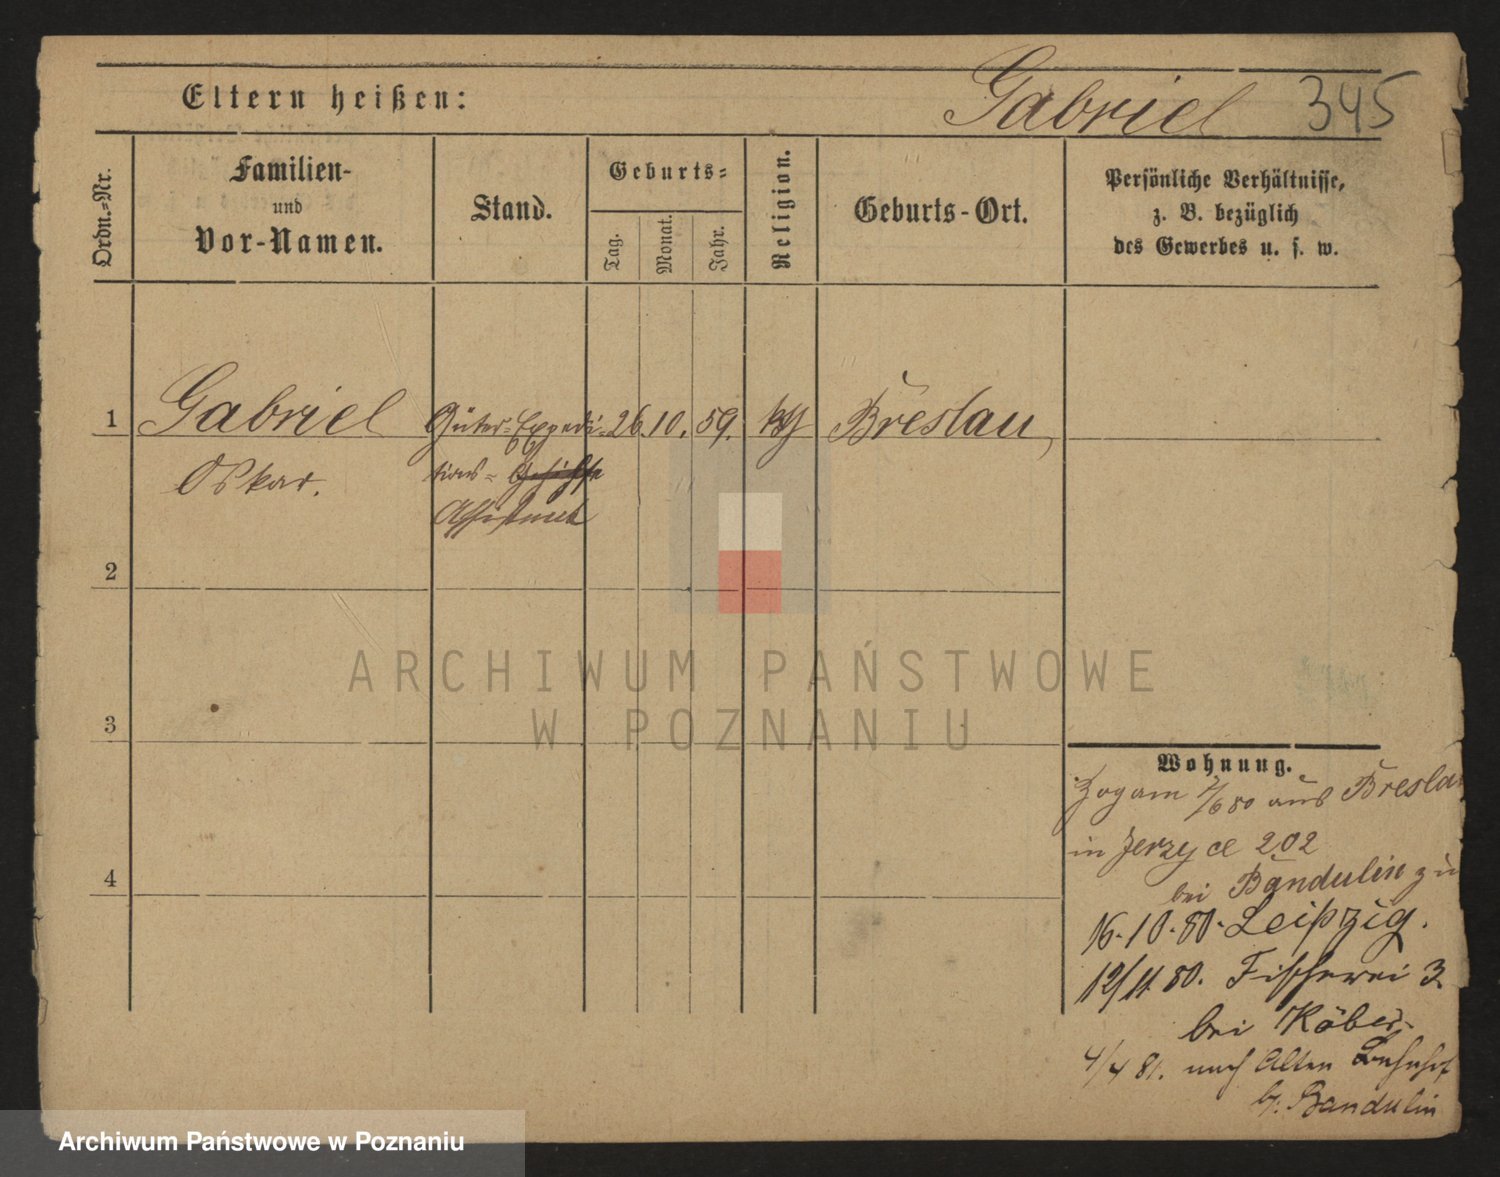 Eltern heißen: Gabriel 345
Ordn.-Nr.
Familien-
und
Vor-Namen.
Stand.
Geburts-
Tag.
Monat.
Jahr.
Religion.
Geburts-Ort.
Persönliche Verhältnisse,
z. B. bezüglich
des Gewerbes u. s. w.
1 Gabriel Güter-Expedi- 26. 10. 59. Breslau,
Oskar. tions- Gehilfe
Assistent
2
3
4
ARCHIWUM PAŃSTWOWE
W POZNANIU
Wohnung.
Zog am 2/6 80 aus Breslau
in Jerzyce 202
bei Bandulin zu
16.10.80. Leipzig.
12/11 80. Fischerei 3
bei Köber.
4/4 81. nach Alten Bahnhof
b. Bandulin
Archiwum Państwowe w Poznaniu